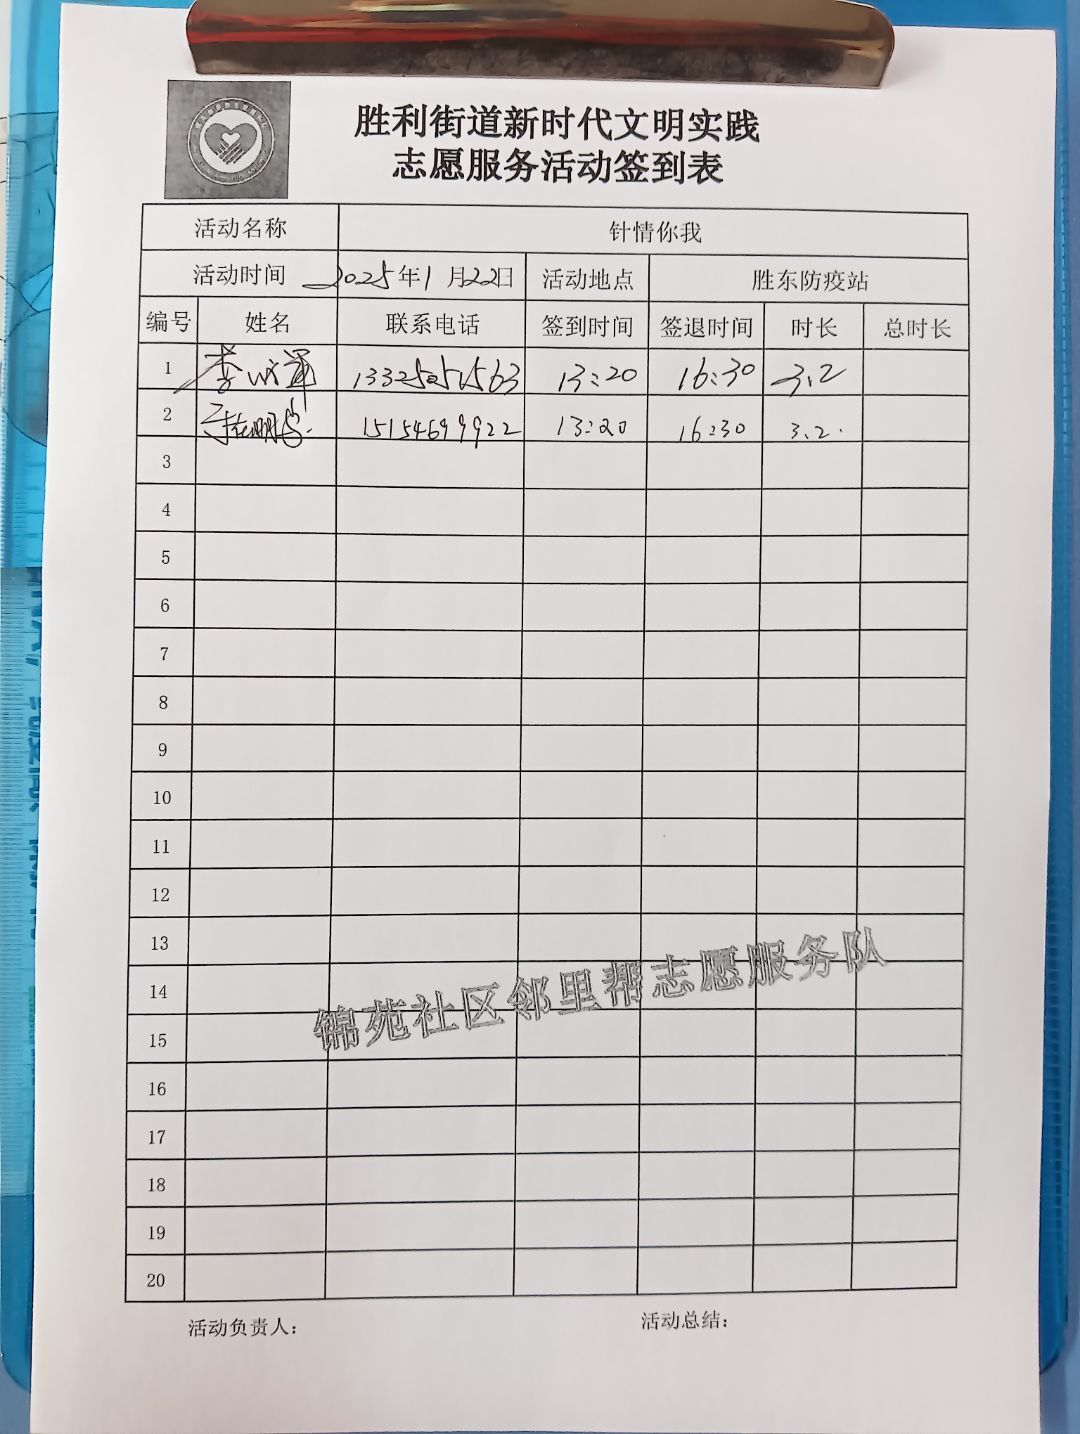 胜利街道新时代文明实践
志愿服务活动签到表
活动名称 针情你我
活动时间 2025年1月22日 活动地点 胜东防疫站
编号 姓名 联系电话 签到时间 签退时间 时长 总时长
1 李 13325251563 13:20 16:30 3.2
2 15154699922 13:20 16:30 3.2.
3
4
5
6
7
8
9
10
11
12
13
14
15
16
17
18
19
20
锦苑社区邻里帮志愿服务队
活动负责人: 活动总结: